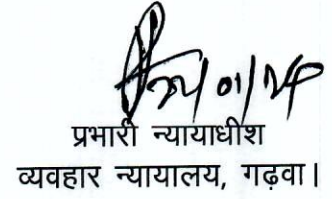 प्रभारी न्यायाधीश
व्यवहार न्यायालय, गढ़वा।